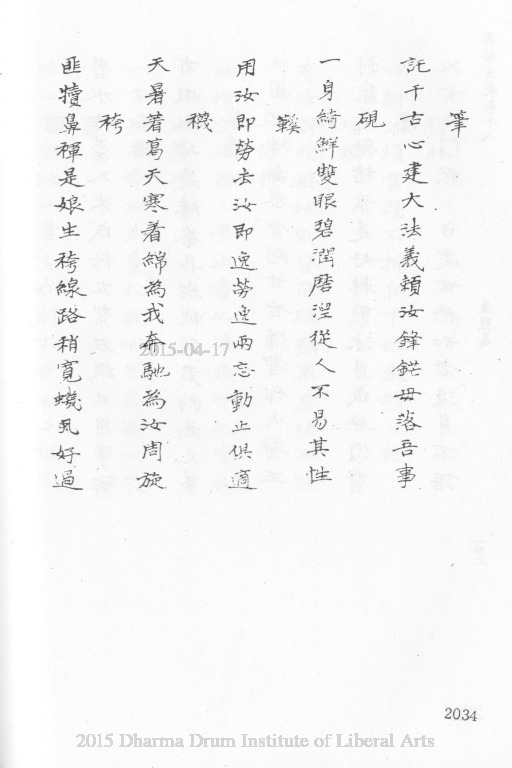 筆
託千古心建大法義賴汝鋒鋩毋落吾事
硯
一身綺鮮雙眼碧潤磨涅從人不易其性
鞵
用汝即勞去汝即逸勞逸兩忘動止俱適
襪
天暑着葛天寒着綿為我奔馳為汝周旋
袴
匪犢鼻褌是娘生袴線路稍寬蟣虱好過
2015-04-17
2034
2015 Dharma Drum Institute of Liberal Arts